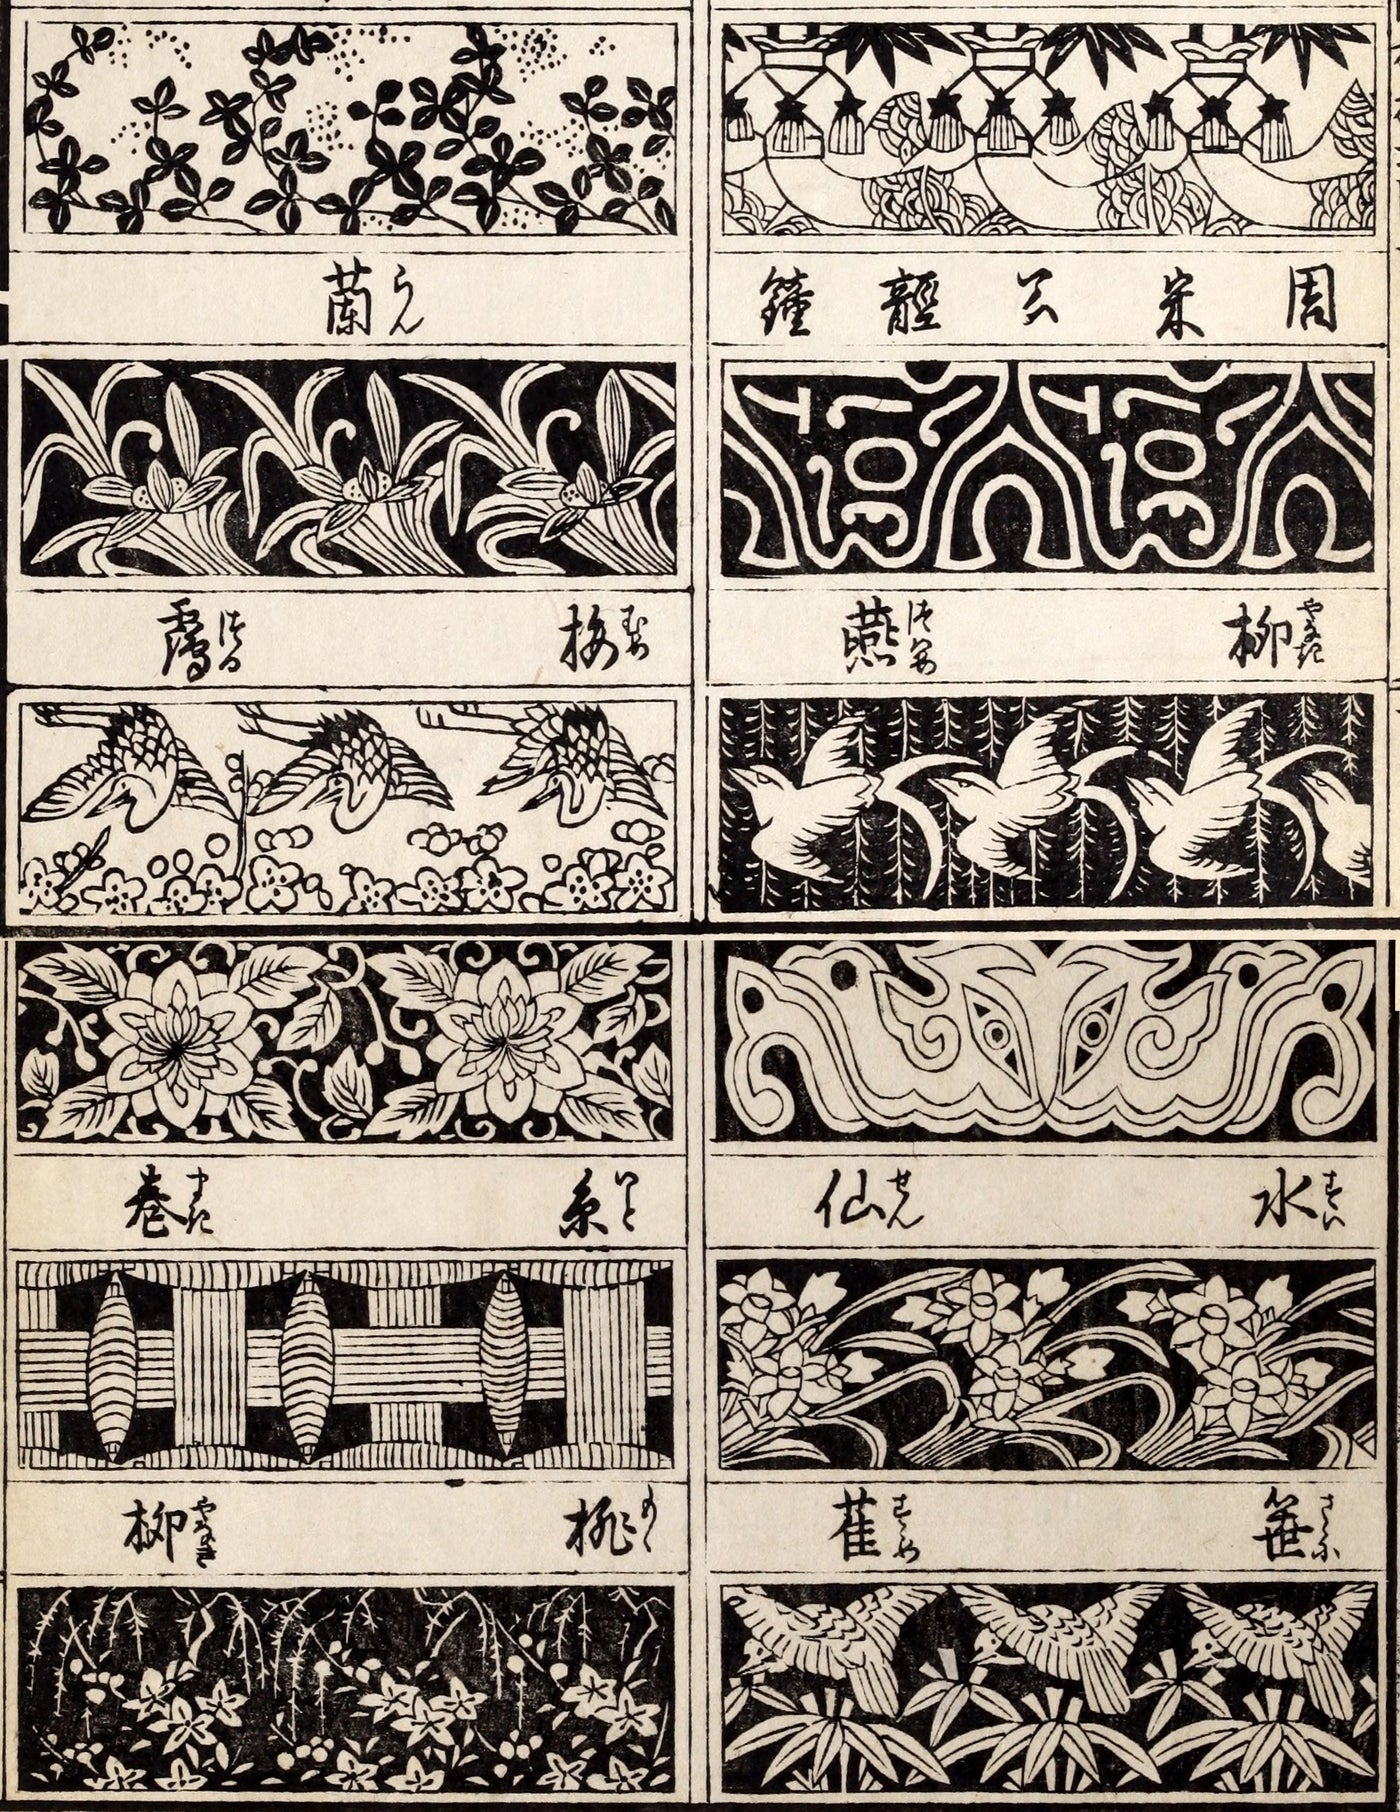 周宋公䪫鐘
柳やなぎ 燕つばめ
蘭らん
梅むめ 靏つる
水すい 仙せん
笹さゝ 雀すゞめ
糸いと 巻まき
桃もゝ 柳やなぎ